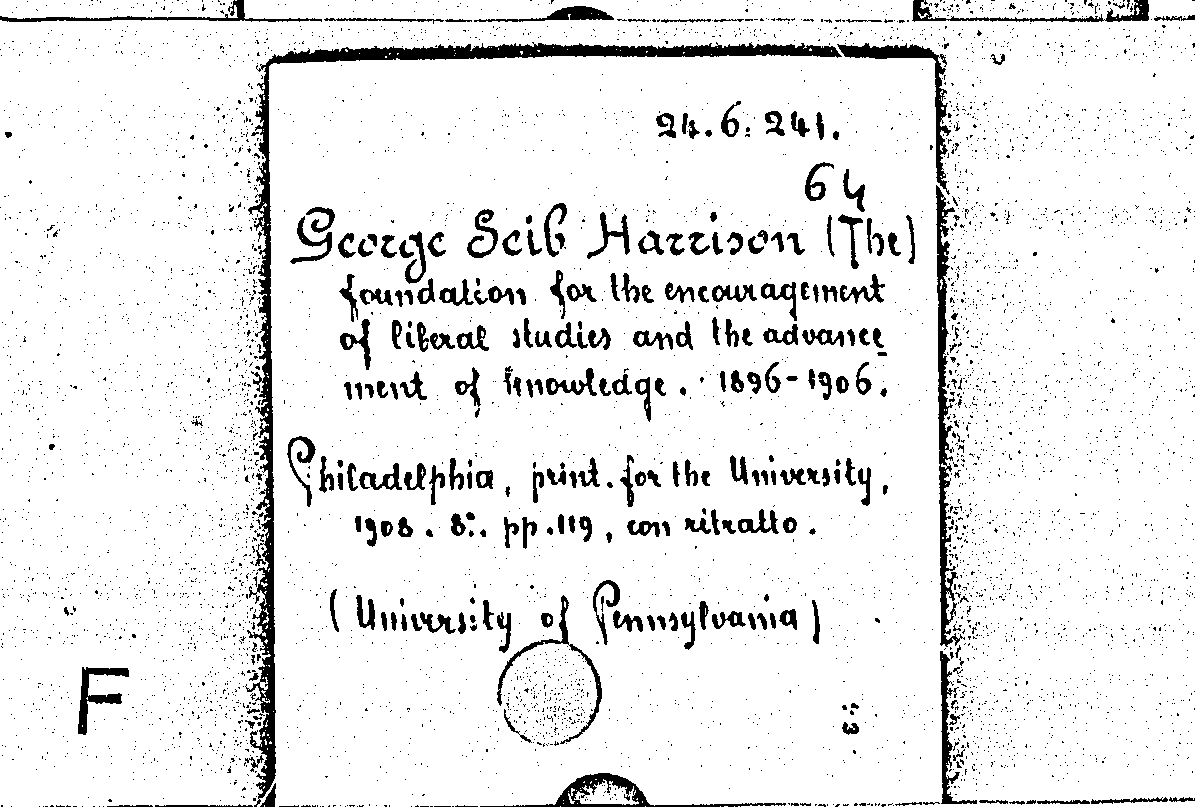 24.6.241.
64
George Scib Harrison (The)
foundation for the encouragement
of liberal studies and the advance
ment of knowledge. 1896-1906.
Philadelphia, print. for the University,
1908. 8°. pp. 119, con ritratto.
(University of Pennsylvania)
F